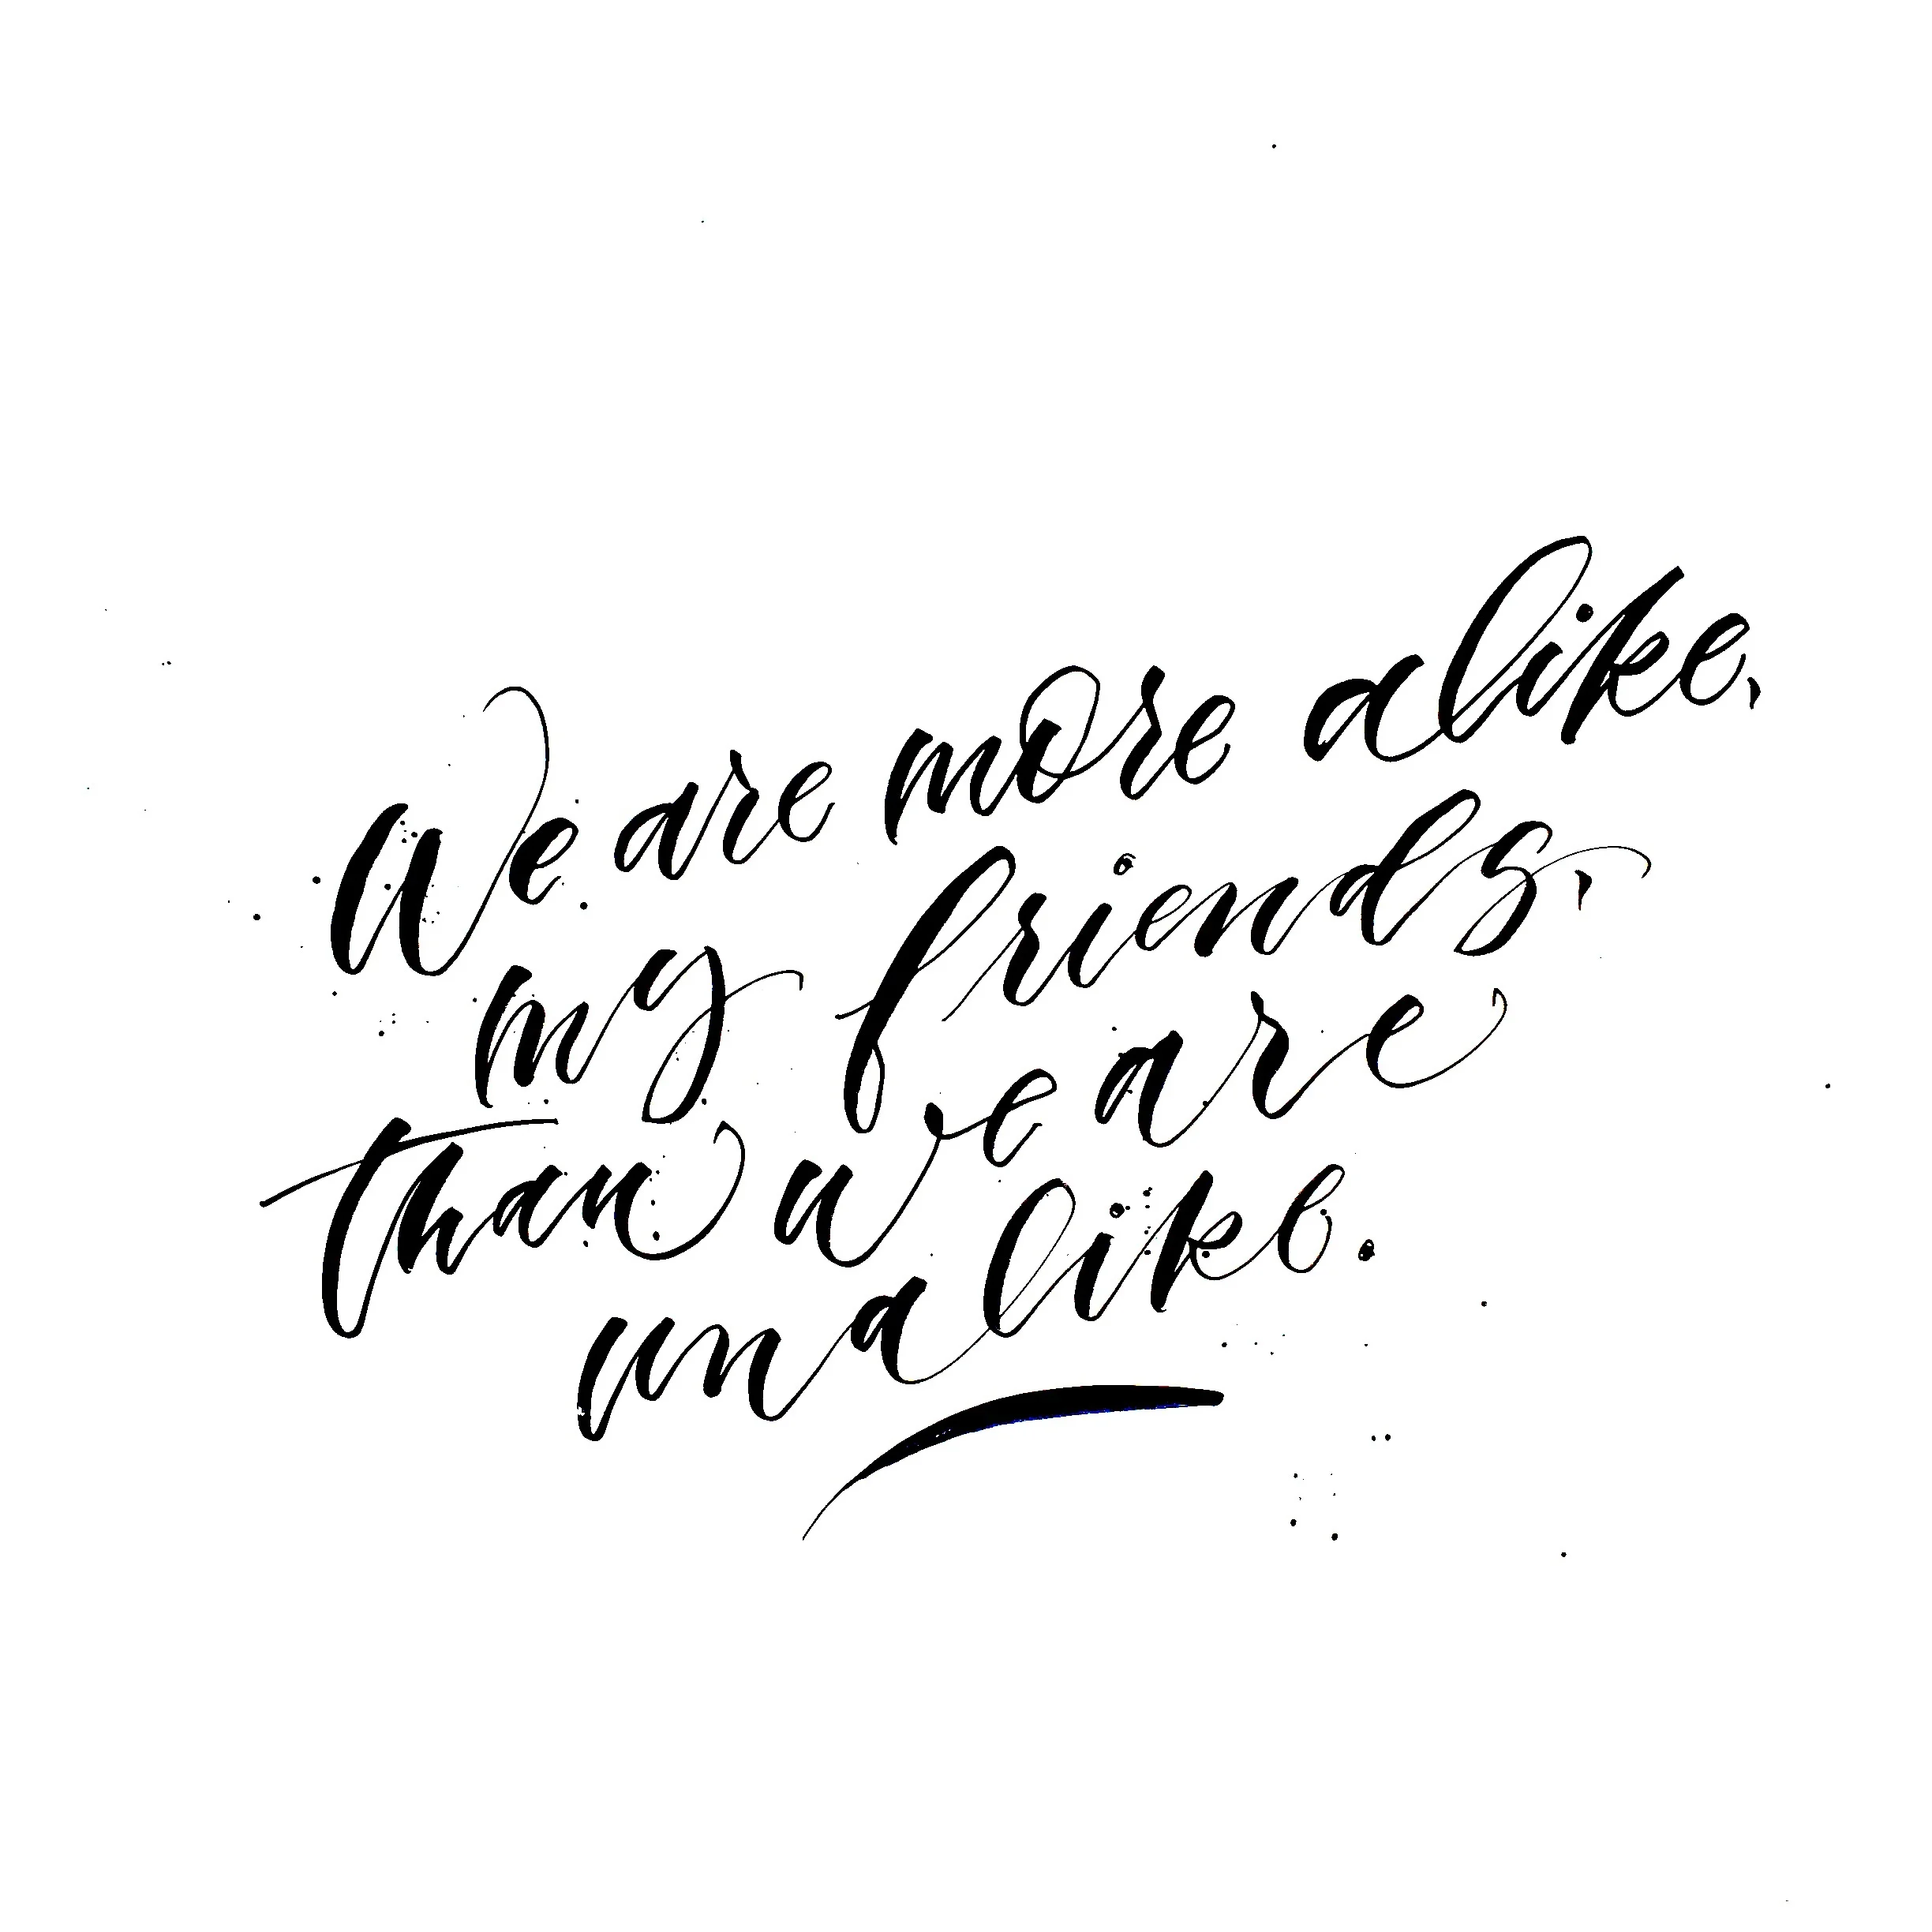 We are more alike,
my friends,
than we are
unalike.